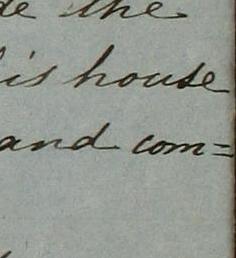 de the
his house
and com=